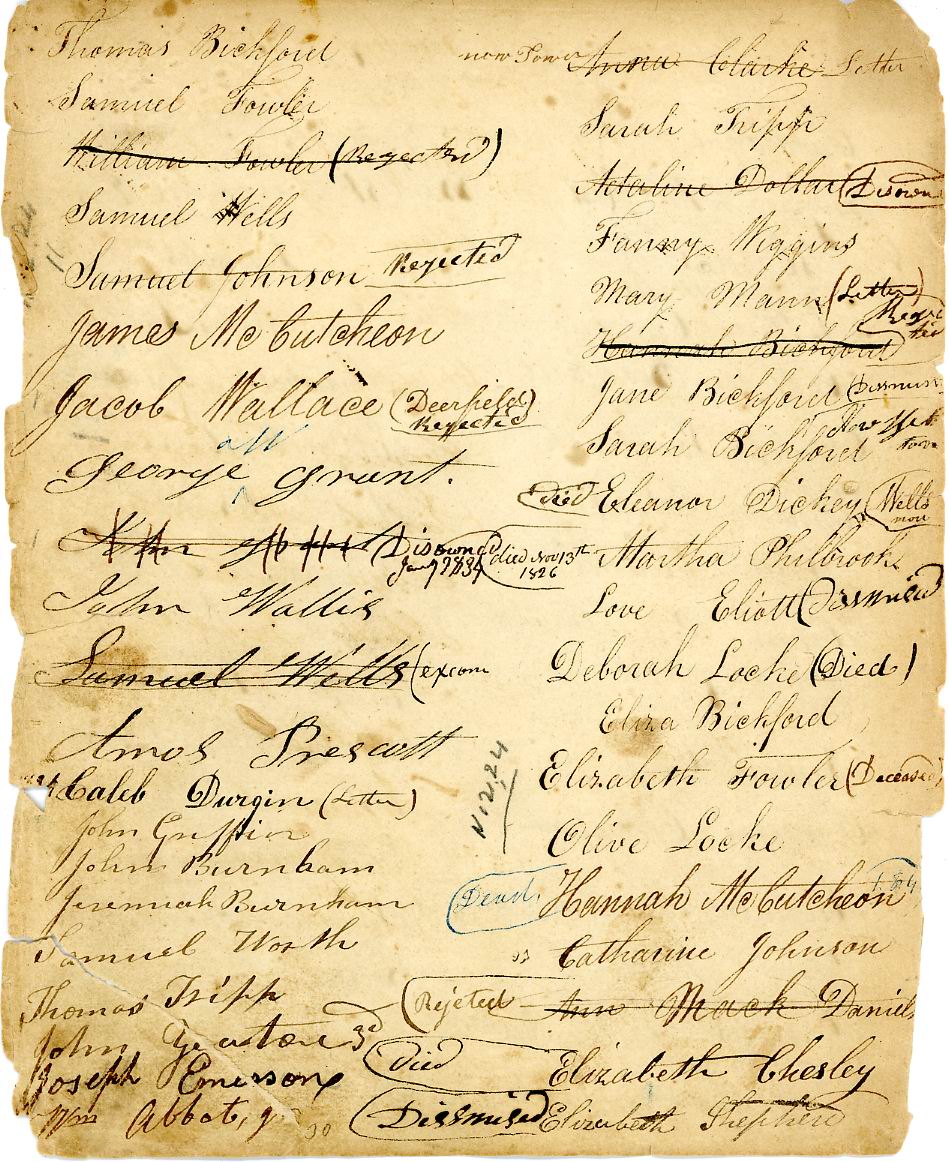 Thomas Bickford
Samuel Fowler
William Fowler (Regected)
Samuel Wells
Samuel Johnson Rejected
James McCutcheon
Jacob Wallace (Deerfield)
Rejected
George Grant.
Disowned
Jan 7 1834
John Wallis
Samuel Wells (excom
Amos Prescott
Caleb Durgin (Letter)
John Griffin
John Burnham
Jeremiah Burnham
Samuel Worth
Thomas Tripp
John 3d
Joseph Emerson
Wm Abbot, 
now Town Anna Clarke Letter
Sarah Tripp
Adaline Dollar (Disown
Fanny Wiggins
Mary Mann (Letter)
Hannah Bickford Rejec
ted
Jane Bickford (Dismis
Sarah Bickford
Died Eleanor Dickey (Wells
died Nov 13th
1826
Martha Philbrook
Love Eliott (Dissmised
Deborah Locke (Died)
Eliza Bickford
No 12, 24
Elizabeth Fowler (Deceased)
Olive Locke
Dead Hannah McCutcheon
Catharine Johnson
Rejeted Ann Mack Daniels
Died Elizabeth Chesley
Dissmised Elizabeth Shepherd